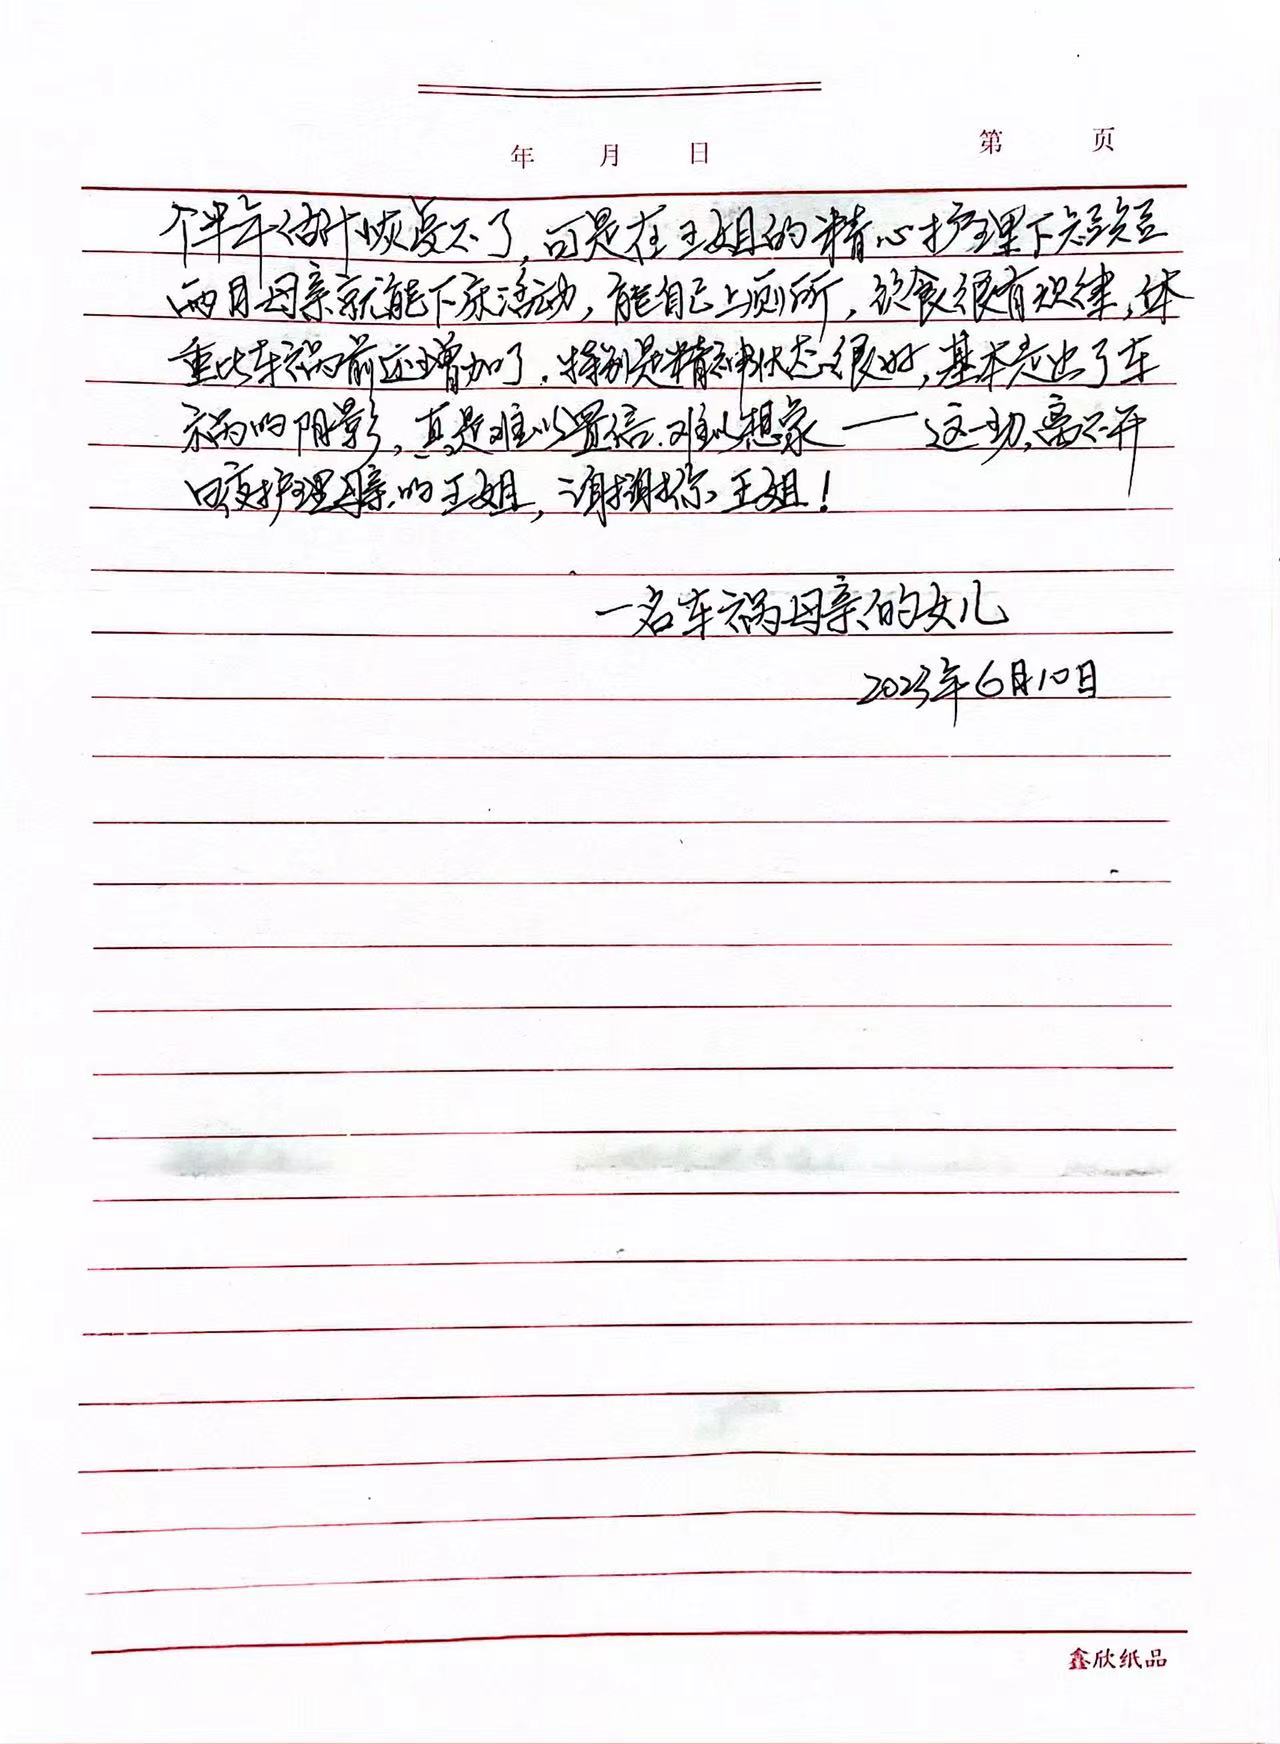 年 月 日
第 页
个半年估计恢复不了，可是在王姐的精心护理下短短
两月母亲就能下床活动，能自己上厕所，饮食很有规律，体
重比车祸前还增加了．特别是精神状态很好，基本走出了车
祸的阴影，真是难以置信．难以想象——这一切，离不开
日夜护理母亲的王姐，谢谢你王姐！
一名车祸母亲的女儿
2023年6月10日
鑫欣纸品